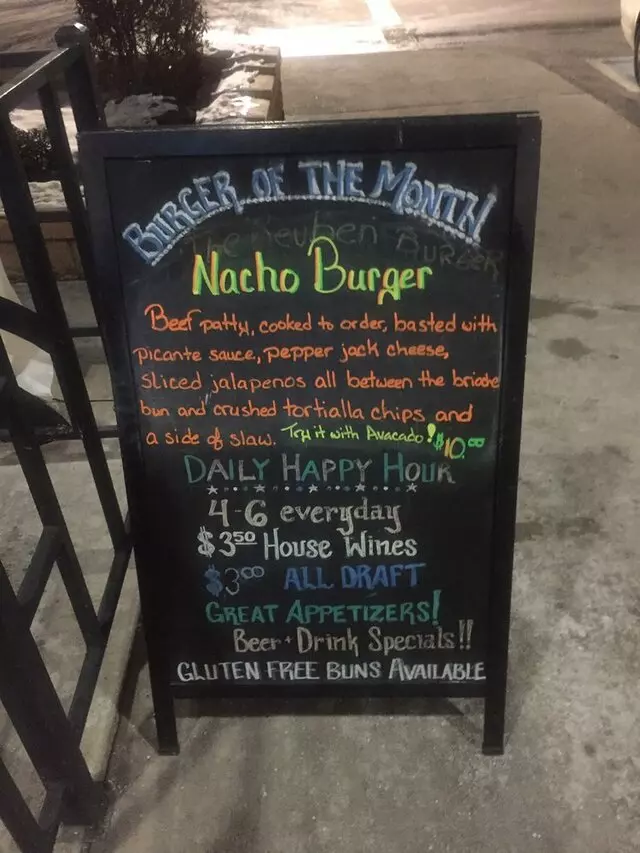 BURGER OF THE MONTH
The Reuben BURGER
Nacho Burger
Beef patty, cooked to order, basted with
picante sauce, pepper jack cheese,
sliced jalapenos all between the brioche
bun and crushed tortialla chips and
a side of slaw. Try it with Avacado! $10.00
DAILY HAPPY HOUR
4-6 everyday
$3.50 House Wines
$3.00 ALL DRAFT
GREAT APPETIZERS!
Beer + Drink Specials!!
GLUTEN FREE BUNS AVAILABLE